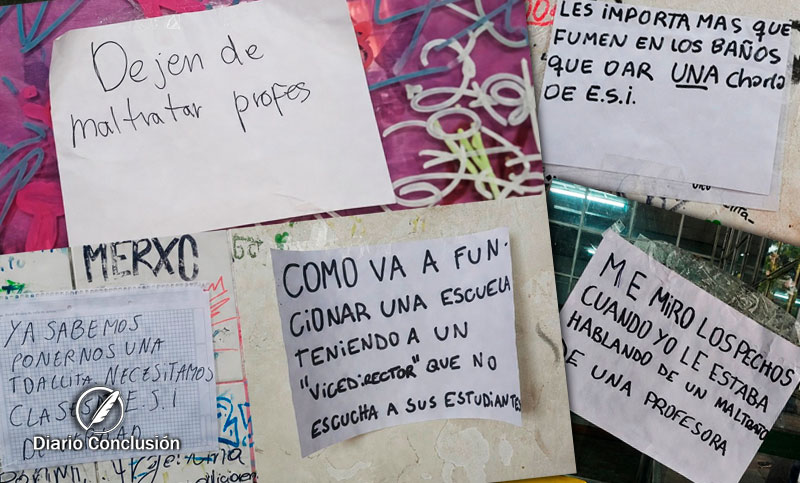 Dejen de
maltratar profes
LES IMPORTA MAS QUE
FUMEN EN LOS BAÑOS
QUE DAR UNA charla
DE E.S.i.
MERXO
YA SABEMOS
PONERNOS UNA
TOALLITA. NECESITAMOS
CLASES DE E.S.I
COMO VA A FUN-
CIONAR UNA ESCUELA
TENIENDO A UN
"VICEDIRECTOR" QUE NO
ESCUCHA A SUS ESTUDIANTES
ME MIRO LOS PECHOS
CUANDO YO LE ESTABA
HABLANDO DE UN MALTRATO
DE UNA PROFESORA
Diario Conclusión